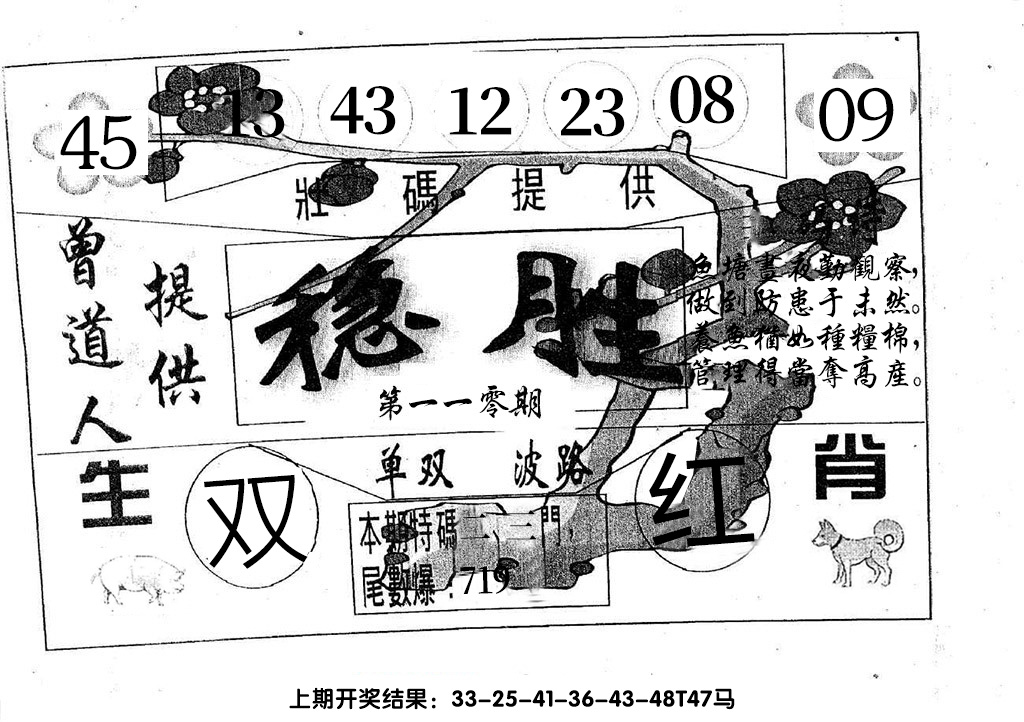 45 13 43 12 23 08 09
壯碼提供
曾道人
提供
稳胜
第一一零期
特
魚塘晝夜勤觀察，
做到防患于未然。
養魚猶如種糧棉，
管理得當奪高產。
单双 波路
生肖
双
红
本期特碼二、三門，
尾數爆：719
上期开奖结果：33-25-41-36-43-48T47马